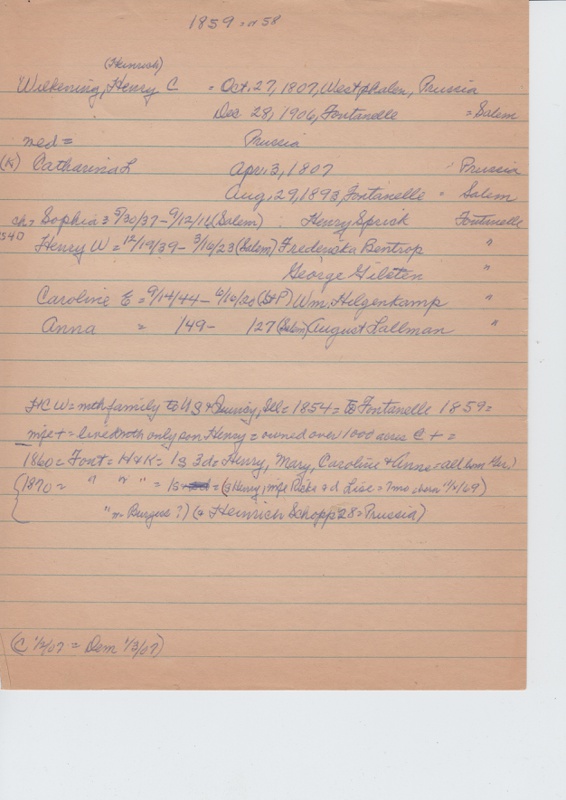 1859 = or 58
(Heinrich)
Wilkening, Henry C = Oct. 27, 1807, Westphalen, Prussia
Dec 28, 1906, Fontanelle = Salem
med = Prussia
(K) Catharina L Apr. 3, 1807 Prussia
Aug. 29, 1893, Fontanelle = Salem
ch = Sophia = 5/30/37 - 9/12/16 (Salem) Henry Sprick Fontanelle
1540
Henry W = 12/19/39 - 3/16/23 (Salem) Fredericka Bentrop "
George Gilsten "
Caroline E = 9/14/44 - 6/16/20 (St P) Wm. Helgenkamp "
Anna = /49 - /27 (Salem) August Lallman "
HCW = with family to US & Quincy, Ill = 1854 = to Fontanelle 1859 =
wife + = lived with only son Henry = owned over 1000 acres C + =
1860 = Font = H & K = 1s 3d = Henry, Mary, Caroline & Anna = all born
(1870 = " " " = 1s = (s Henry, wife Ricka = d Lise = 7mo, born 11/4/69)
" Burgess ?) (= Heinrich Schopp 28 = Prussia)
(C 1/2/07 = Dem 1/3/07)